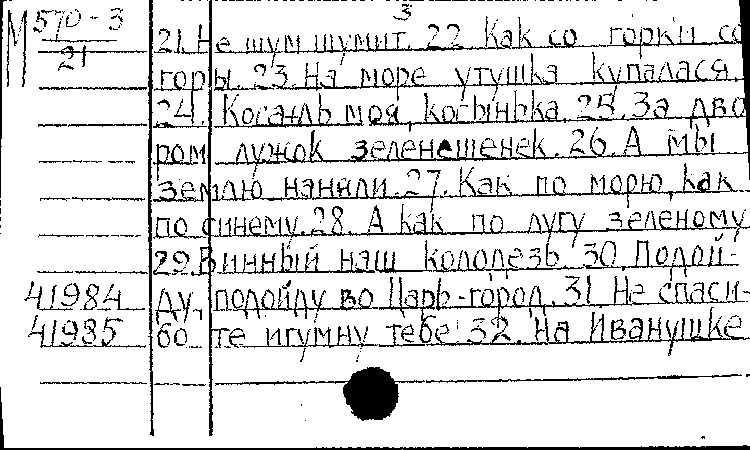 3
М 570-3
21
21. Не шум шумит. 22. Как со горки со
горы. 23. На море утушка купалася.
24. Коса-ль моя, косынька. 25. За дво
ром лужок зеленешенек. 26. А мы
землю наняли. 27. Как по морю, как
по синему. 28. А как по лугу зеленому
29. Винный наш колодезь. 30. Подой-
41984 ду, подойду во Царь-город. 31. Не спаси-
41985 бо те игумну тебе! 32. На Иванушке